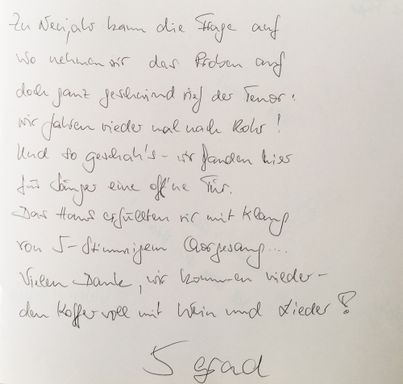 Zu Neujahr kam die Frage auf
wo nehmen wir das Proben auf
doch ganz geschwind rief der Tenor:
wir fahren wieder mal nach Rohr!
Und so geschah's – wir fanden hier
für Sänger eine off'ne Tür.
Das Haus erfüllten wir mit Klang
von 5-Stimmigem Chorgesang....
Vielen Dank, wir kommen wieder –
den Koffer voll mit Wein und Lieder!
5